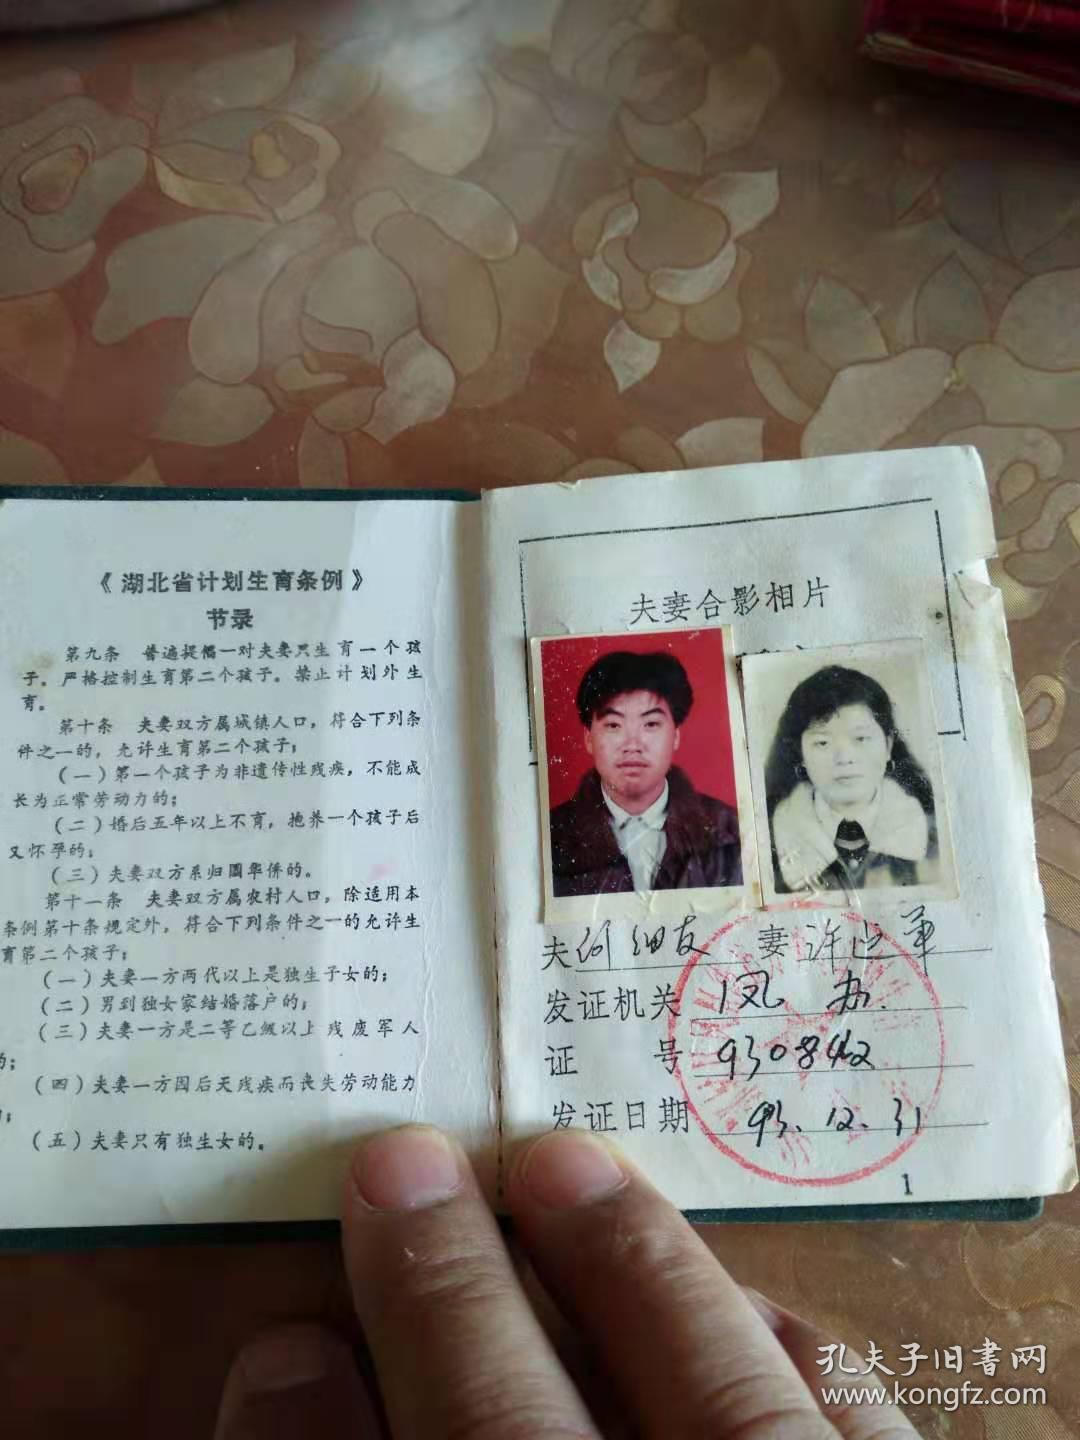 《湖北省计划生育条例》
节录
第九条 普遍提倡一对夫妻只生育一个孩
子。严格控制生育第二个孩子。禁止计划外生
育。
第十条 夫妻双方属城镇人口，符合下列条
件之一的，允许生育第二个孩子；
（一）第一个孩子为非遗传性残疾，不能成
长为正常劳动力的；
（二）婚后五年以上不育，抱养一个孩子后
又怀孕的；
（三）夫妻双方系归国华侨的。
第十一条 夫妻双方属农村人口，除适用本
条例第十条规定外，符合下列条件之一的允许生
育第二个孩子；
（一）夫妻一方两代以上是独生子女的；
（二）男到独女家结婚落户的；
（三）夫妻一方是二等乙级以上残废军人
的；
（四）夫妻一方因后天残疾而丧失劳动能力
的；
（五）夫妻只有独生女的。
夫妻合影相片
夫 何细友 妻 许
发证机关
证 号 930842
发证日期 93.12.31
1
孔夫子旧書网
www.kongfz.com